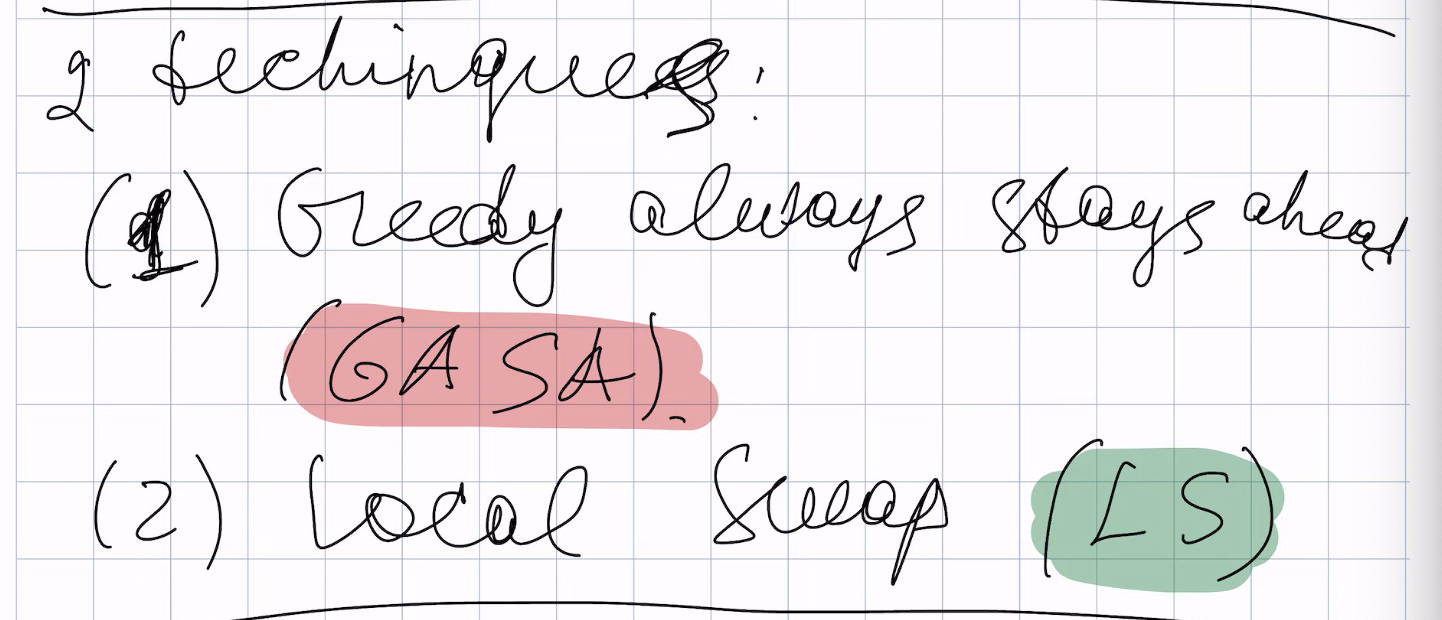 2 techinques:
(1) Greedy always stays ahead
(GASA).
(2) Local Swap (LS)